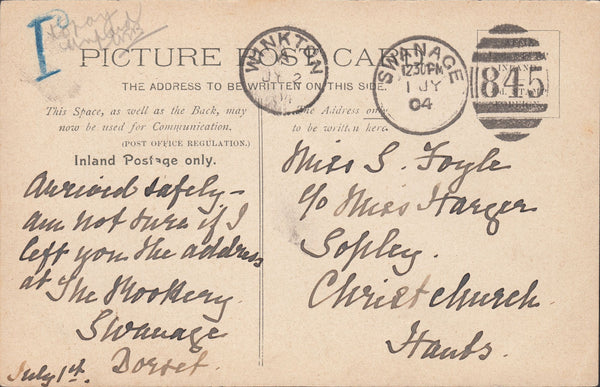 I
PICTURE POST CARD
THE ADDRESS TO BE WRITTEN ON THIS SIDE.
WINKTON
A
JY 2
04
SWANAGE
12.30PM
1 JY
04
845
This Space, as well as the Back, may
now be used for Communication.
(POST OFFICE REGULATION.)
Inland Postage only.
The Address only
to be written here.
Arrived safely -
am not sure if I
left you the address
at The Rookery.
Swanage
Dorset.
July 1st.
Miss S. Foyle
c/o Miss Harger
Sopley.
Christchurch.
Hants.